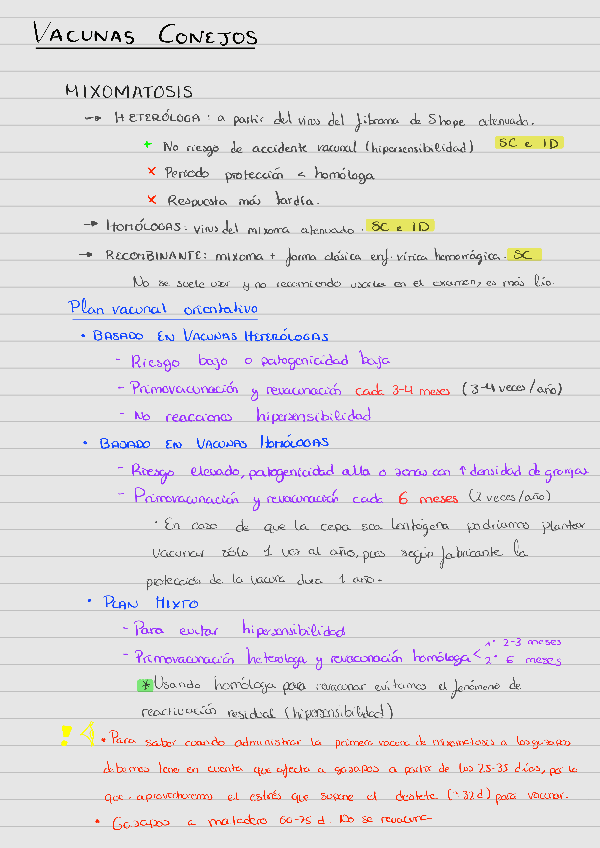 VACUNAS CONEJOS
MIXOMATOSIS
→ HETERÓLOGA: a partir del virus del fibroma de Shope atenuado.
+ No riesgo de accidente vacunal (hipersensibilidad) SC e ID
× Periodo protección < homóloga
× Respuesta más tardía.
→ HOMÓLOGAS: virus del mixoma atenuado. SC e ID
→ RECOMBINANTE: mixoma + forma clásica enf. vírica hemorrágica. SC
No se suele usar y no recomiendo usarla en el examen, es más lío.
Plan vacunal orientativo
• BASADO EN VACUNAS HETERÓLOGAS
- Riesgo bajo o patogenicidad baja
- Primovacunación y revacunación cada 3-4 meses (3-4 veces/año)
- No reacciones hipersensibilidad
• BASADO EN VACUNAS HOMÓLOGAS
- Riesgo elevado, patogenicidad alta o zonas con ↑ densidad de granjas
- Primovacunación y revacunación cada 6 meses (2 veces/año)
· En caso de que la cepa sea lentógena podríamos plantear
vacunar sólo 1 vez al año, pues según fabricante la
protección de la vacuna dura 1 año.
• PLAN MIXTO
- Para evitar hipersensibilidad
- Primovacunación heteróloga y revacunación homóloga < 1º 2-3 meses
2º 6 meses
* Usando homóloga para revacunar evitamos el fenómeno de
reactivación residual (hipersensibilidad)
• Para saber cuando administrar la primera vacuna de mixomatosis a los gazapos
debemos tener en cuenta que afecta a gazapos a partir de los 25-35 días, por lo
que aprovecharemos el estrés que supone el destete (~32d) para vacunar.
• Gazapos a matadero 60-75 d. No se revacuna